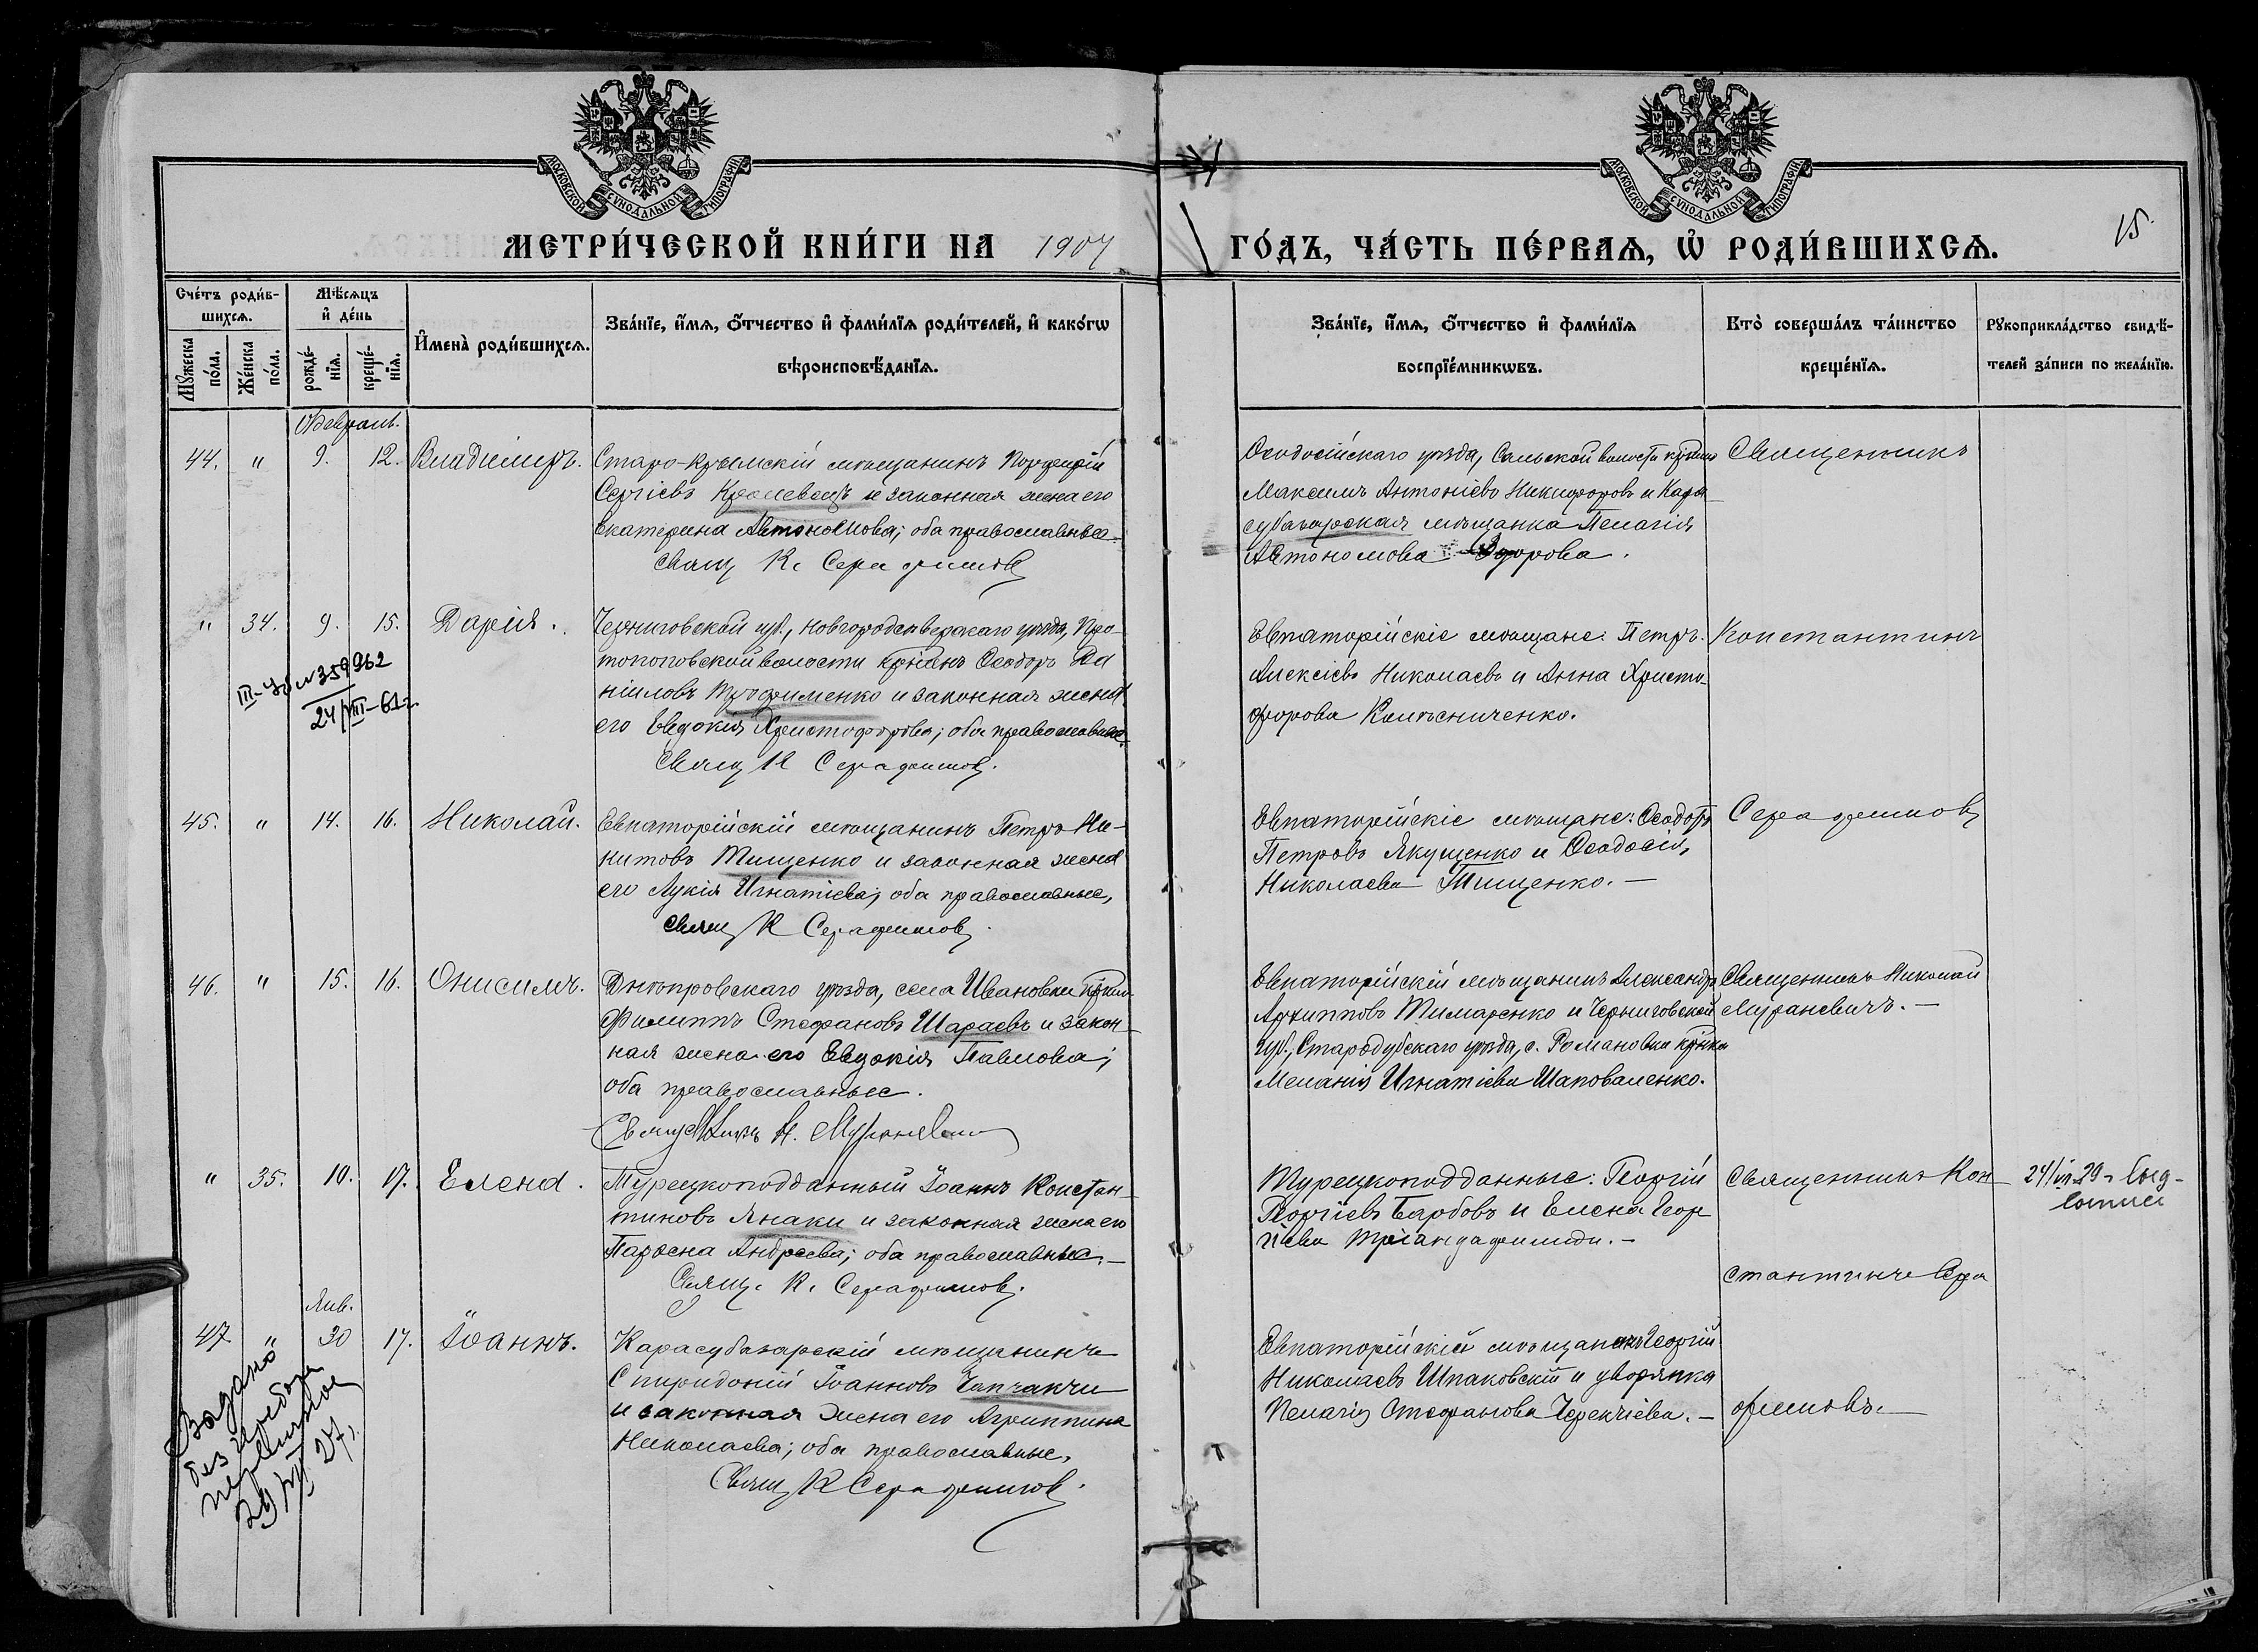 МОСКОВСКОЙ СѴНОДАЛЬНОЙ ТИПОГРАФІИ
МОСКОВСКОЙ СѴНОДАЛЬНОЙ ТИПОГРАФІИ
МЕТРИ́ЧЕСКОЙ КНИ́ГИ НА 1907
ГО́ДЪ, ЧА́СТЬ ПЕ́РВАѦ, Ѡ҆ РОДИ́ВШИХСѦ.
15.
Сче́тъ роди́вшихсѧ.
Мꙋ́жеска по́ла.
Же́нска по́ла.
Мѣ́сѧцъ и҆ де́нь
рожде́нїѧ.
креще́нїѧ.
И҆мена̀ роди́вшихсѧ.
Зва́нїе, и҆́мѧ, ѻ҆́тчество и҆ фами́лїѧ роди́телей, и҆ како́гѡ
вѣроисповѣ́данїѧ.
Зва́нїе, и҆́мѧ, ѻ҆́тчество и҆ фами́лїѧ
воспрїе́мникѡвъ.
Кто̀ соверша́лъ та́инство
креще́нїѧ.
Рꙋкоприкла́дство свидѣ́-
телей за́писи по жела́нїю.
Февраль.
44. " 9. 12. Владиміръ.
Старо-Крымскій мѣщанинъ Порфирій
Сергіевъ Кролевецъ и законная жена его
Екатерина Автономова; оба православные.
Свящ К. Серафимовъ
Ѳеодосійскаго уѣзда, Сальской волости кр-нинъ
Максимъ Антоніевъ Никифоровъ и Кара-
субазарская мѣщанка Пелагія
Автономова
Священникъ
" 34. 9. 15. Дарія.
III-ЧБ № 359962
24/III-61г
Черниговской губ., Новгородсѣверскаго уѣзда, Про-
топоповской волости кр-нинъ Ѳеодоръ Да
ніиловъ Трофименко и законная жена
его Евдокія Христофорова; оба православные.
Свящ К Серафимовъ.
Евпаторійскіе мѣщане: Петръ
Алексіевъ Николаевъ и Анна Христо-
форова Колѣсниченко.
Константинъ
45. " 14. 16. Николай.
Евпаторійскій мѣщанинъ Петръ Ни-
китовъ Тищенко и законная жена
его Лукія Игнатіева; оба православные,
Свящ К Серафимовъ.
Евпаторійскіе мѣщане: Ѳеодоръ
Петровъ Якущенко и Ѳеодосія
Николаева Тищенко. —
Серафимовъ
46. " 15. 16. Онисимъ.
Днѣпровскаго уѣзда, села Ивановки кр-нинъ
Филиппъ Стефановъ Шараевъ и закон-
ная жена его Евдокія Павлова;
оба православные.
Священникъ Н. Мураневичъ
Евпаторійскій мѣщанинъ Александръ
Архипповъ Тимаренко и Черниговской
губ., Стародубскаго уѣзда, с. Романовки кр-нка
Меланія Игнатіева Шаповаленко.
Священникъ Николай
Мураневичъ. —
" 35. 10. 17. Елена.
Турецкоподданный Іоаннъ Констан-
тиновъ Янаки и законная жена его
Парѳена Андреева; оба православные. —
Свящ. К. Серафимовъ.
Турецкоподданные: Георгій
Георгіевъ Барбовъ и Елена Геор
гіева Тріандафилиди. —
Священникъ Кон-
стантинъ Сера
24/VII 29 г
47 " Янв. 30 17. Іоаннъ.
Карасубазарскій мѣщанинъ
Спиридоній Іоанновъ Чапчакчи
и законная жена его Агриппина
Николаева; оба православные,
Свящ К Серафимовъ.
Евпаторійскій мѣщанинъ Георгій
Николаевъ Шпаковскій и дворянка
Пелагія Стефанова Черкчіева. —
фимовъ. —
Выдано
без